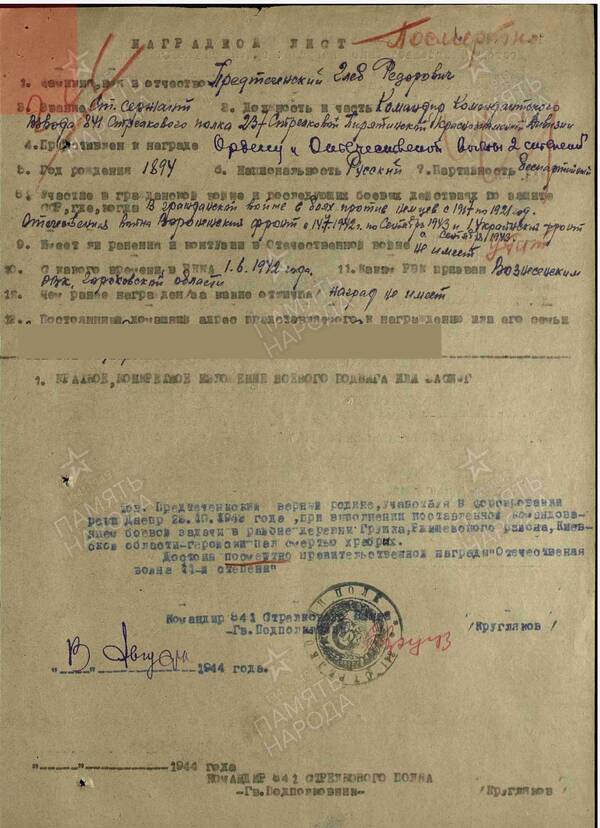 НАГРАДНОЙ ЛИСТ Посмертно
1. Фамилия, имя и отчество Предтеченский Глеб Федорович
2. Звание Ст. сержант 3. Должность и часть Командир Комендантского
взвода 841 Стрелкового полка 237 Стрелковой Пирятинской Краснознаменной дивизии
4. Представлен к награде Ордену "Отечественной Войны 2 степени"
5. Год рождения 1894 6. Национальность Русский 7. Партийность Беспартийный
8. Участие в гражданской войне и последующих боевых действиях по защите
СССР, где, когда В гражданской войне в боях против немцев с 1917 по 1921 год.
Отечественная война Воронежский фронт с 14.7.1942 г. по Сентябрь 1943 и 1 Украинский фронт
с Сентября 1943 г.
9. Имеет ли ранения и контузии в Отечественной войне не имеет убит
10. С какого времени в РККА 1.6.1942 года. 11. Каким РВК призван Вознесенским
РВК, Горьковской области
12. Чем ранее награжден/за какие отличия/ наград не имеет
13. Постоянный домашний адрес представляемого к награждению или его семьи
1. КРАТКОЕ, КОНКРЕТНОЕ ИЗЛОЖЕНИЕ БОЕВОГО ПОДВИГА ИЛИ ЗАСЛУГ
Тов. Предтеченский верный родине, участвуя в форсировании
реки Днепр 1943 года, при выполнении поставленной командова-
нием боевой задачи в районе деревни Ржищевского района, Киев-
ской области-геройски пал смертью храбрых.
Достоин посмертно правительственной награды "Отечественная
война 11-й степени"
Командир 841 Стрелкового полка
-Гв. Подполковник /Кругляков/
"В" Август 1944 года.
"___"______1944 года
КОМАНДИР 841 СТРЕЛКОВОГО ПОЛКА
-Гв. Подполковник- /Кругляков/
ПАМЯТЬ НАРОДА